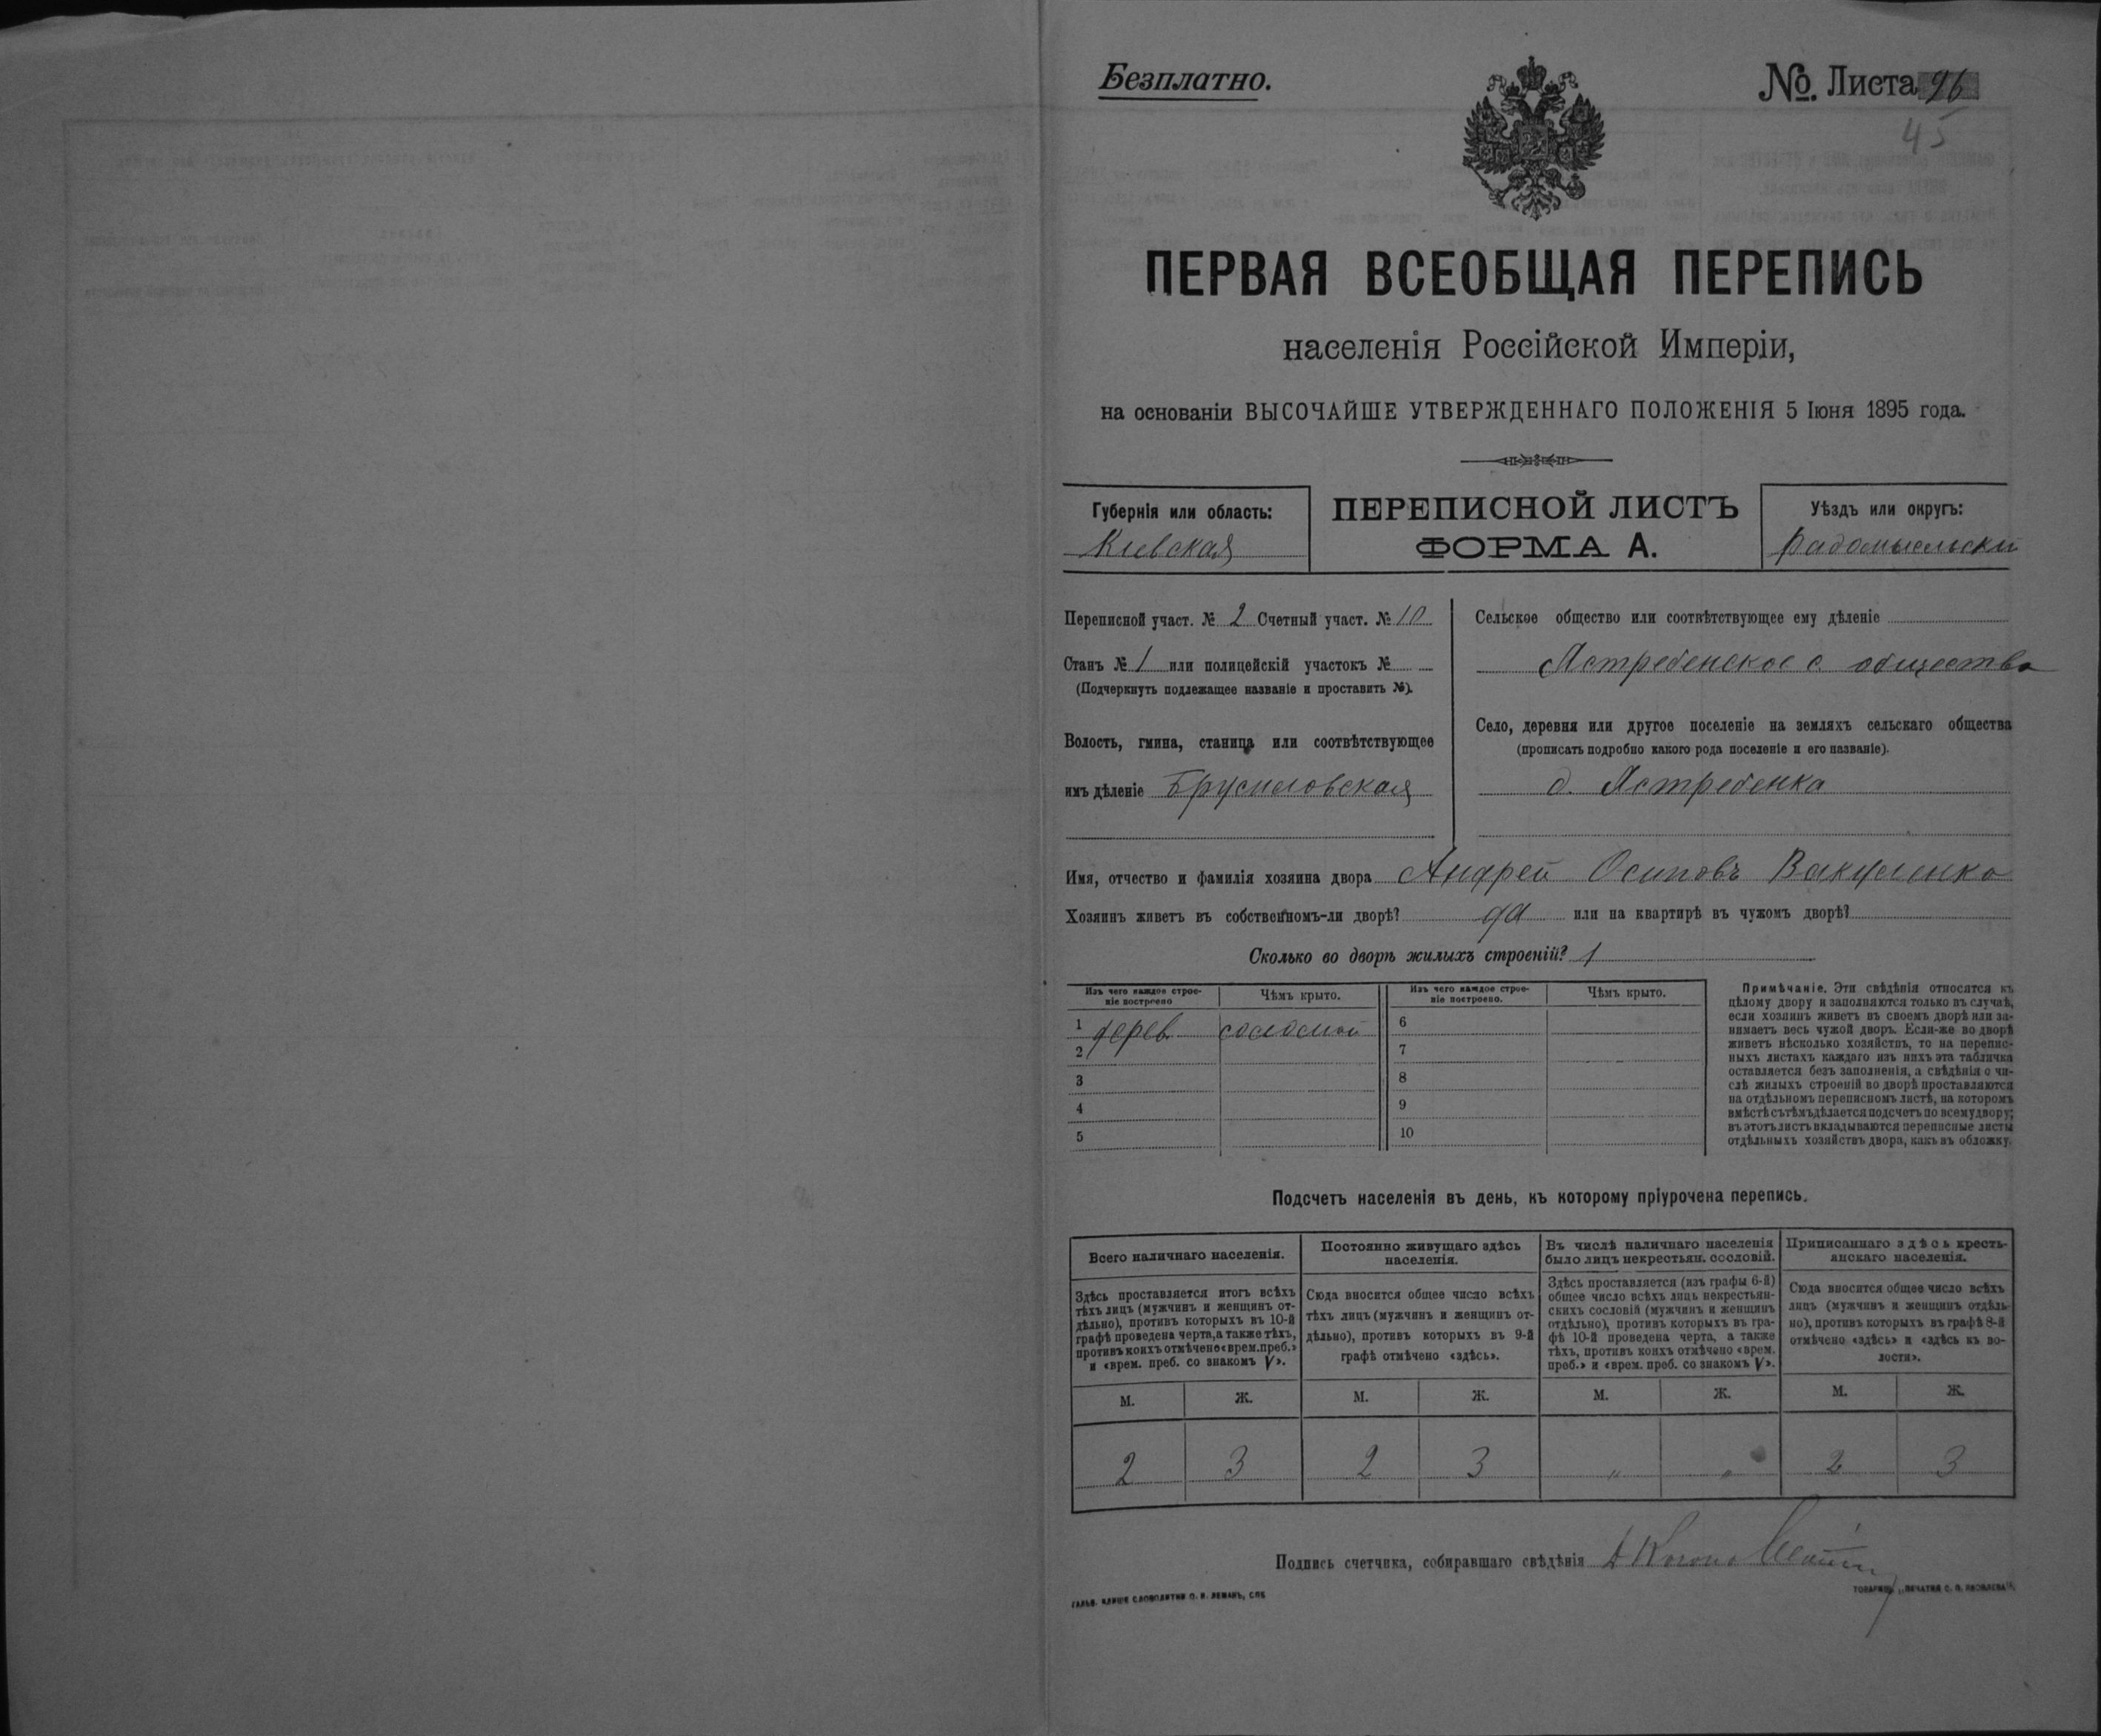 Безплатно.
№. Листа 96
45
ПЕРВАЯ ВСЕОБЩАЯ ПЕРЕПИСЬ
населенія Россійской Имперіи,
на основаніи ВЫСОЧАЙШЕ УТВЕРЖДЕННАГО ПОЛОЖЕНІЯ 5 Іюня 1895 года.
Губернія или область:
Киевская
ПЕРЕПИСНОЙ ЛИСТЪ
ФОРМА А.
Уѣздъ или округъ:
Радомысльски
Переписной участ. № 2 Счетный участ. № 10
Станъ № 1 или полицейскій участокъ №
(Подчеркнуть подлежащее названіе и проставить №).
Волость, гмина, станица или соотвѣтствующее
имъ дѣленіе Брусиловская
Сельское общество или соотвѣтствующее ему дѣленіе
Ястребенское с. общества
Село, деревня или другое поселеніе на земляхъ сельскаго общества
(прописать подробно какого рода поселеніе и его названіе).
д. Ястребенка
Имя, отчество и фамилія хозяина двора Андрей Осиповъ Вакуленко
Хозяинъ живетъ въ собственномъ-ли дворѣ? да или на квартирѣ въ чужомъ дворѣ?
Сколько во дворѣ жилыхъ строеній? 1
Изъ чего каждое строе-
ніе построено
Чѣмъ крыто.
Изъ чего каждое строе-
ніе построено.
Чѣмъ крыто.
1 дерев. соломой
2
3
4
5
6
7
8
9
10
Примѣчаніе. Эти свѣдѣнія относятся къ
цѣлому двору и заполняются только въ случаѣ,
если хозяинъ живетъ въ своемъ дворѣ или за-
нимаетъ весь чужой дворъ. Если-же во дворѣ
живетъ нѣсколько хозяйствъ, то на перепис-
ныхъ листахъ каждаго изъ нихъ эта табличка
оставляется безъ заполненія, а свѣдѣнія о чи-
слѣ жилыхъ строеній во дворѣ проставляются
на отдѣльномъ переписномъ листѣ, на которомъ
вмѣстѣ съ тѣмъ дѣлается подсчетъ по всему двору;
въ этотъ листъ вкладываются переписные листы
отдѣльныхъ хозяйствъ двора, какъ въ обложку.
Подсчетъ населенія въ день, къ которому пріурочена перепись.
Всего наличнаго населенія.
Здѣсь проставляется итогъ всѣхъ
тѣхъ лицъ (мужчинъ и женщинъ от-
дѣльно), противъ которыхъ въ 10-й
графѣ проведена черта, а также тѣхъ,
противъ коихъ отмѣчено «врем. преб.»
и «врем. преб. со знакомъ V».
Постоянно живущаго здѣсь
населенія.
Сюда вносится общее число всѣхъ
тѣхъ лицъ (мужчинъ и женщинъ от-
дѣльно), противъ которыхъ въ 9-й
графѣ отмѣчено «здѣсь».
Въ числѣ наличнаго населенія
было лицъ некрестьян. сословій.
Здѣсь проставляется (изъ графы 6-й)
общее число всѣхъ лицъ некрестьян-
скихъ сословій (мужчинъ и женщинъ
отдѣльно), противъ которыхъ въ гра-
фѣ 10-й проведена черта, а также
тѣхъ, противъ коихъ отмѣчено «врем.
преб.» и «врем. преб. со знакомъ V».
Приписаннаго здѣсь кресть-
янскаго населенія.
Сюда вносится общее число всѣхъ
лицъ (мужчинъ и женщинъ отдѣль-
но), противъ которыхъ въ графѣ 8-й
отмѣчено «здѣсь» и «здѣсь въ во-
лости».
М. Ж. М. Ж. М. Ж. М. Ж.
2 3 2 3 „ „ 2 3
Подпись счетчика, собиравшаго свѣдѣнія
ГАЛЬВ. КЛИШЕ СЛОВОЛИТНИ О. И. ЛЕМАНЪ, СПБ.
ТОВАРИЩ. „ПЕЧАТНЯ С. П. ЯКОВЛЕВА“.